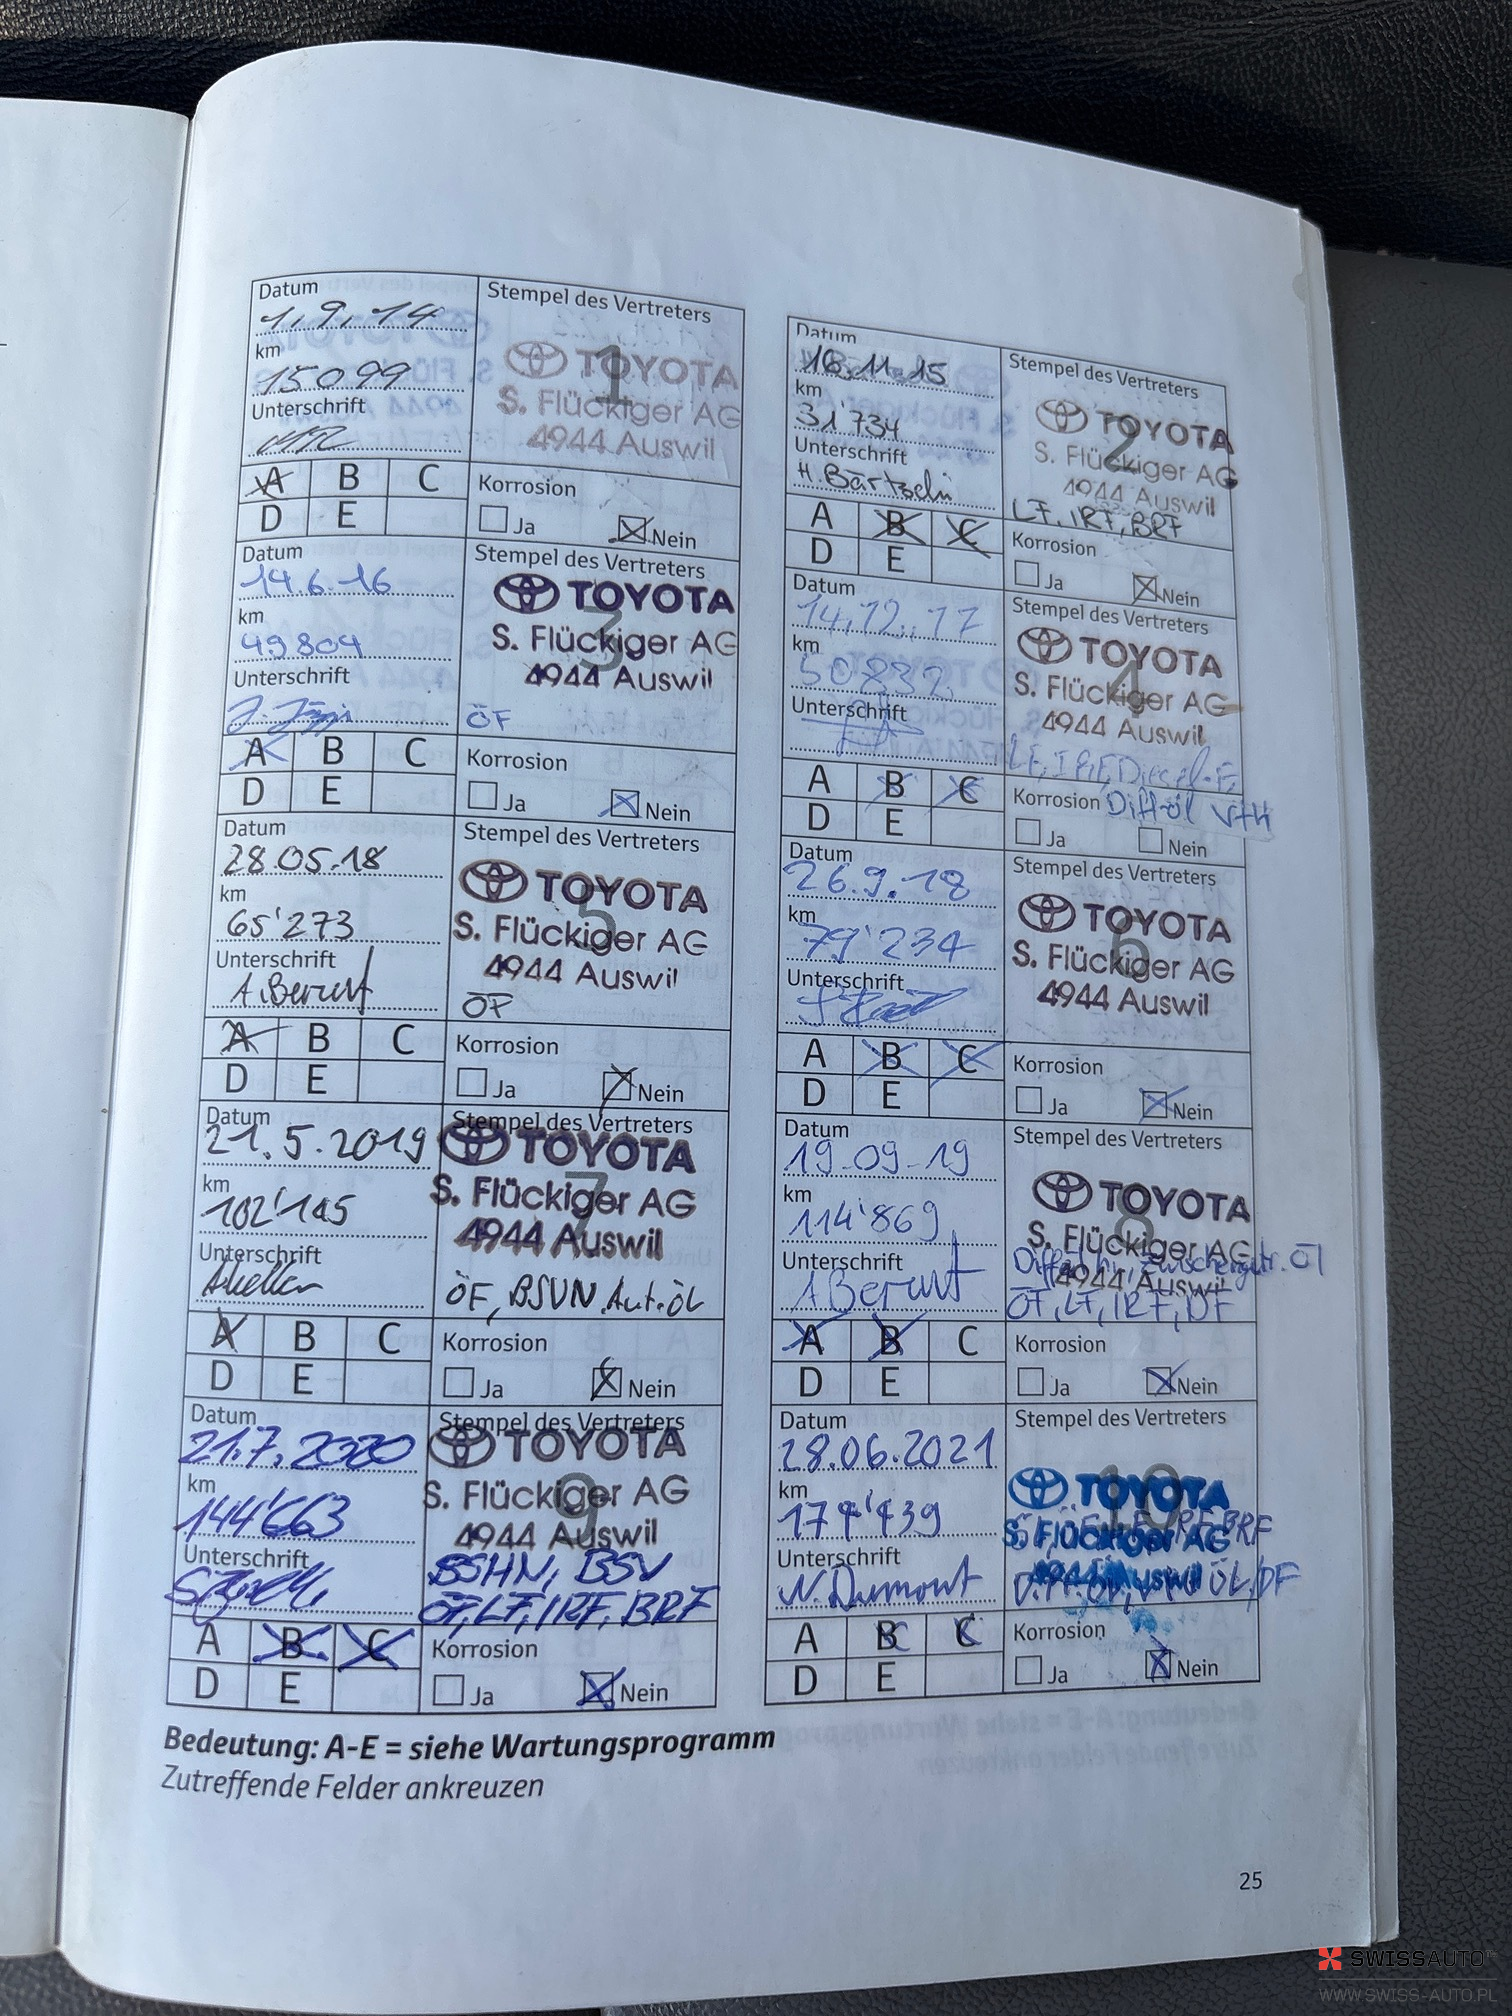 Datum
1.9.14
km
15099
Unterschrift
Stempel des Vertreters
1
TOYOTA
S. Flückiger AG
4944 Auswil
A B C
D E
Korrosion
Ja Nein
Datum
18.11.15
km
31'734
Unterschrift
H. Bärtschi
Stempel des Vertreters
2
TOYOTA
S. Flückiger AG
4944 Auswil
LF, IRF, BRF
A B C
D E
Korrosion
Ja Nein
Datum
14.6.16
km
49804
Unterschrift
Stempel des Vertreters
3
TOYOTA
S. Flückiger AG
4944 Auswil
ÖF
A B C
D E
Korrosion
Ja Nein
Datum
14.12.17
km
50832
Unterschrift
Stempel des Vertreters
4
TOYOTA
S. Flückiger AG
4944 Auswil
LF, IRF, Diesel-F,
Diff-öl V+H
A B C
D E
Korrosion
Ja Nein
Datum
28.05.18
km
65'273
Unterschrift
A. Berunt
Stempel des Vertreters
5
TOYOTA
S. Flückiger AG
4944 Auswil
ÖF
A B C
D E
Korrosion
Ja Nein
Datum
26.9.18
km
79'234
Unterschrift
Stempel des Vertreters
6
TOYOTA
S. Flückiger AG
4944 Auswil
A B C
D E
Korrosion
Ja Nein
Datum
21.5.2019
km
102'145
Unterschrift
Stempel des Vertreters
7
TOYOTA
S. Flückiger AG
4944 Auswil
ÖF, BSVN, Aut.öL
A B C
D E
Korrosion
Ja Nein
Datum
19-09-19
km
114'869
Unterschrift
A Berunt
Stempel des Vertreters
8
TOYOTA
S. Flückiger AG
4944 Auswil
ÖF, LF, IRF, DF
A B C
D E
Korrosion
Ja Nein
Datum
21.7.2020
km
144'663
Unterschrift
Stempel des Vertreters
9
TOYOTA
S. Flückiger AG
4944 Auswil
BSHN, BSV
ÖF, LF, IRF, BRF
A B C
D E
Korrosion
Ja Nein
Datum
28.06.2021
km
174'439
Unterschrift
N. Dumont
Stempel des Vertreters
10
TOYOTA
S. Flückiger AG
4944 Auswil
A B C
D E
Korrosion
Ja Nein
Bedeutung: A-E = siehe Wartungsprogramm
Zutreffende Felder ankreuzen
25
SWISSAUTO
WWW.SWISS-AUTO.PL